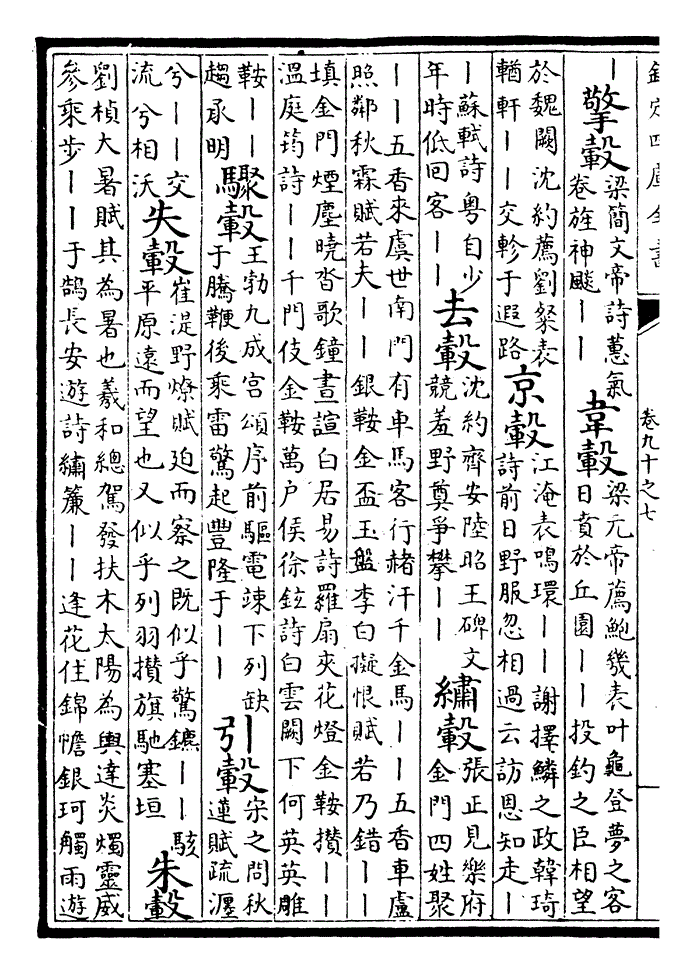 欽定四庫全書
卷九十之七
｜擎轂梁簡文帝詩蕙氣卷旌神飈｜｜韋轂梁元帝薦鮑幾表叶龜登夢之客日賁於丘園｜｜投釣之臣相望
於魏闕沈約薦劉粲表輶軒｜｜交軫于遐路京轂江淹表鳴環｜｜謝擇鱗之政韓琦詩前日野服忽相過云訪恩知走｜
｜蘇軾詩粤自少年時低回客｜｜去轂沈約齊安陸昭王碑文競羞野奠爭攀｜｜繡轂張正見樂府金門四姓聚
｜｜五香來虞世南門有車馬客行赭汗千金馬｜｜五香車盧
照鄰秋霖賦若夫｜｜銀鞍金盃玉盤李白擬恨賦若乃錯｜｜
填金門煙塵曉沓歌鐘晝諠白居易詩羅扇夾花燈金鞍攢｜｜
溫庭筠詩｜｜千門伎金鞍萬户侯徐鉉詩白雲闕下何英英雕
鞍｜｜趨承明驟轂王勃九成宮頌序前驅電竦下列缺于騰鞭後乘雷驚起豐隆于｜｜引轂宋之問秋蓮賦疏瀍
兮｜｜交流兮相沃失轂崔湜野燎賦迫而察之既似乎驚鑣｜｜駭平原遠而望也又似乎列羽攢旗馳塞垣朱轂
劉楨大暑賦其為暑也羲和總駕發扶木太陽為輿達炎燭靈威
參乘步｜｜于鵠長安遊詩繡簾｜｜逢花住錦幨銀珂觸雨遊